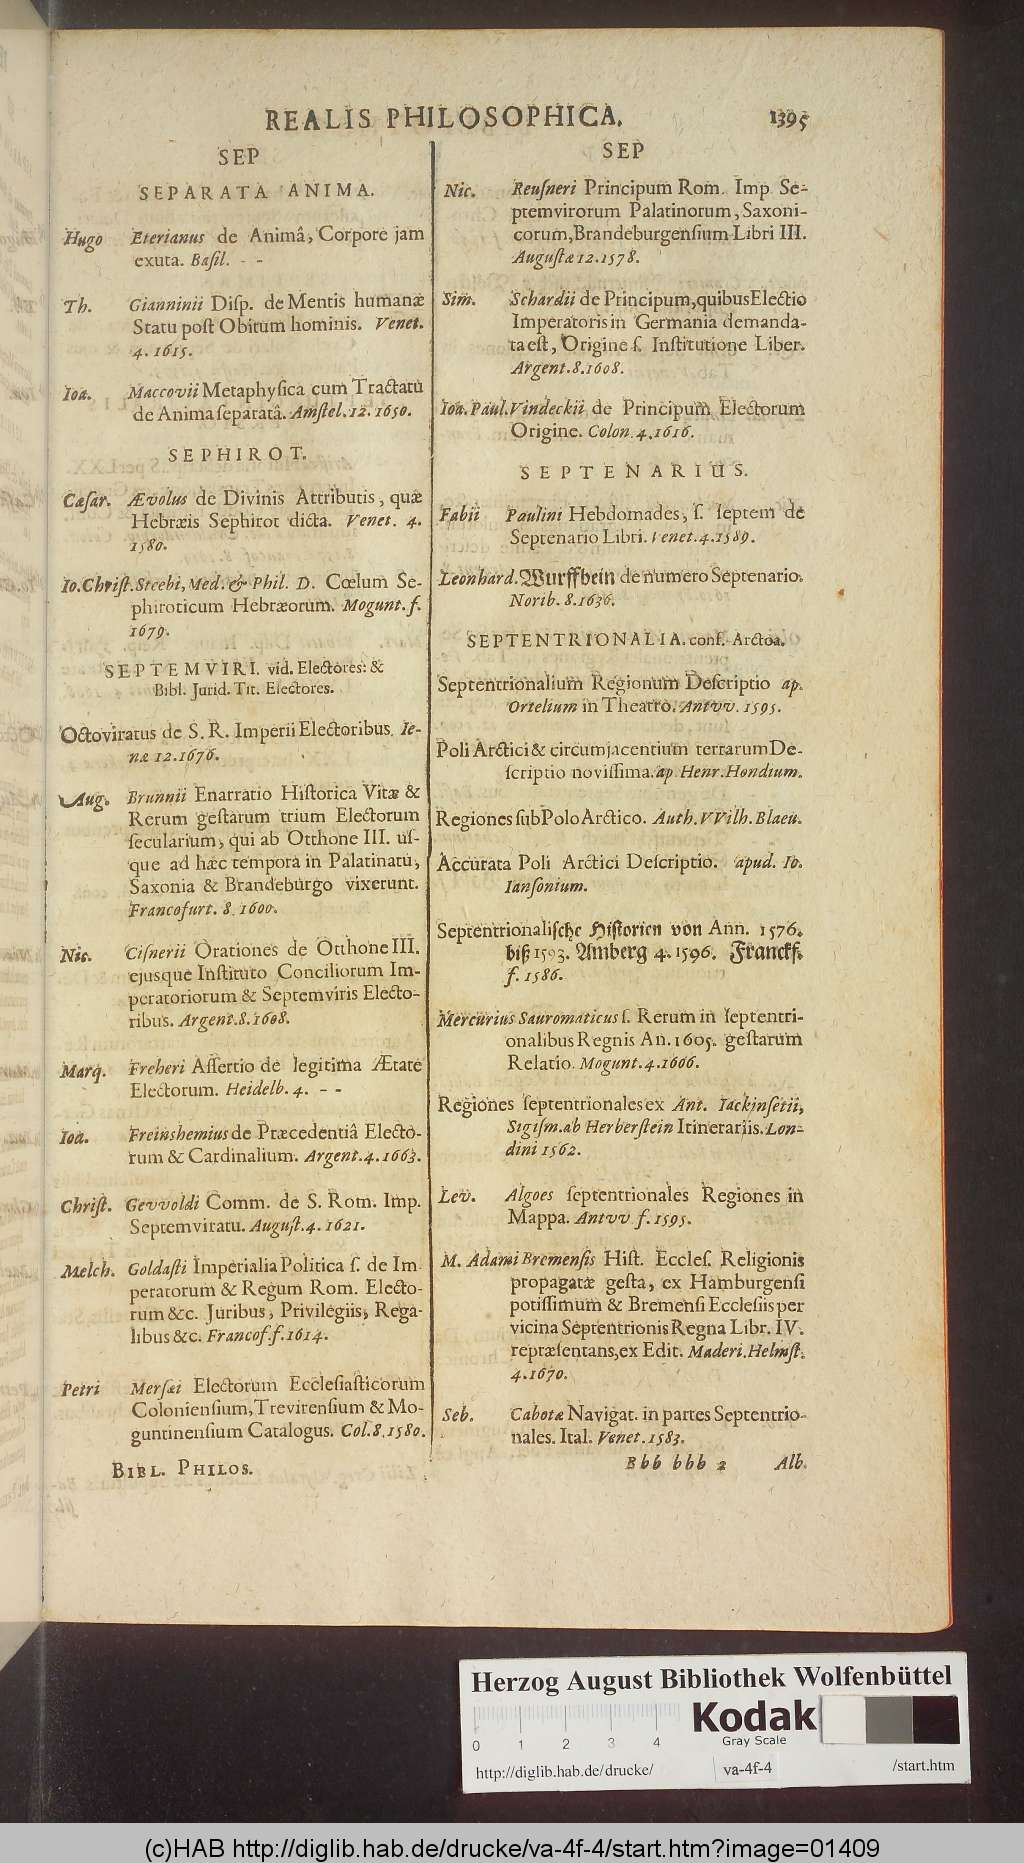 REALIS PHILOSOPHICA. 1395
SEP
SEPARATA ANIMA.
Hugo Eterianus de Animâ, Corpore jam
exuta. Basil. - -
Th. Gianninii Disp. de Mentis humanæ
Statu post Obitum hominis. Venet.
4. 1615.
Ioa. Maccovii Metaphysica cum Tractatu
de Anima separatâ. Amstel. 12. 1650.
SEPHIROT.
Cæsar. Ævolus de Divinis Attributis, quæ
Hebræis Sephirot dicta. Venet. 4.
1580.
Io. Christ. Steebi, Med. & Phil. D. Cœlum Se-
phiroticum Hebræorum. Mogunt. f.
1679.
SEPTEMVIRI. vid. Electores: &
Bibl. Jurid. Tit. Electores.
Octoviratus de S. R. Imperii Electoribus. Ie-
næ 12. 1676.
Aug. Brunnii Enarratio Historica Vitæ &
Rerum gestarum trium Electorum
secularium, qui ab Otthone III. us-
que ad hæc tempora in Palatinatu,
Saxonia & Brandeburgo vixerunt.
Francofurt. 8. 1600.
Nic. Cisnerii Orationes de Otthone III.
ejusque Instituto Conciliorum Im-
peratoriorum & Septemviris Electo-
ribus. Argent. 8. 1608.
Marq. Freheri Assertio de legitima Ætate
Electorum. Heidelb. 4. - -
Ioa. Freinshemius de Præcedentiâ Electo-
rum & Cardinalium. Argent. 4. 1663.
Christ. Gevvoldi Comm. de S. Rom. Imp.
Septemviratu. August. 4. 1621.
Melch. Goldasti Imperialia Politica s. de Im
peratorum & Regum Rom. Electo-
rum &c. Juribus, Privilegiis, Rega-
libus &c. Francof. f. 1614.
Petri Mersæi Electorum Ecclesiasticorum
Coloniensium, Trevirensium & Mo-
guntinensium Catalogus. Col. 8. 1580.
BIBL. PHILOS.
SEP
Nic. Reusneri Principum Rom. Imp. Se-
ptemvirorum Palatinorum, Saxoni-
corum, Brandeburgensium Libri III.
Augustæ 12. 1578.
Sim. Schardii de Principum, quibus Electio
Imperatoris in Germania demanda-
ta est, Origine s. Institutione Liber.
Argent. 8. 1608.
Ioa. Paul. Vindeckii de Principum Electorum
Origine. Colon. 4. 1616.
SEPTENARIUS.
Fabii Paulini Hebdomades, s. septem de
Septenario Libri. Venet. 4. 1589.
Leonhard. Wurffbein de numero Septenario.
Norib. 8. 1636.
SEPTENTRIONALIA. conf. Arctoa.
Septentrionalium Regionum Descriptio ap.
Ortelium in Theatro. Antvv. 1595.
Poli Arctici & circumjacentium terrarum De-
scriptio novissima. ap. Henr. Hondium.
Regiones sub Polo Arctico. Auth. VVilh. Blaeu.
Accurata Poli Arctici Descriptio. apud. Io.
Iansonium.
Septentrionalische Historien von Ann. 1576.
biß 1593. Amberg 4. 1596. Franckf.
f. 1586.
Mercurius Sauromaticus s. Rerum in septentri-
onalibus Regnis An. 1605. gestarum
Relatio. Mogunt. 4. 1606.
Regiones septentrionales ex Ant. Iackinsetii,
Sigism. ab Herberstein Itinerariis. Lon-
dini 1562.
Lev. Algoes septentrionales Regiones in
Mappa. Antvv. f. 1595.
M. Adami Bremensis Hist. Eccles. Religionis
propagatæ gesta, ex Hamburgensi
potissimum & Bremensi Ecclesiis per
vicina Septentrionis Regna Libr. IV.
repræsentans, ex Edit. Maderi. Helmst.
4. 1670.
Seb. Cabotæ Navigat. in partes Septentrio-
nales. Ital. Venet. 1583.
Bbb bbb 2 Alb.
Herzog August Bibliothek Wolfenbüttel
Kodak
Gray Scale
0 1 2 3 4
http://diglib.hab.de/drucke/ va-4f-4 /start.htm
(c)HAB http://diglib.hab.de/drucke/va-4f-4/start.htm?image=01409